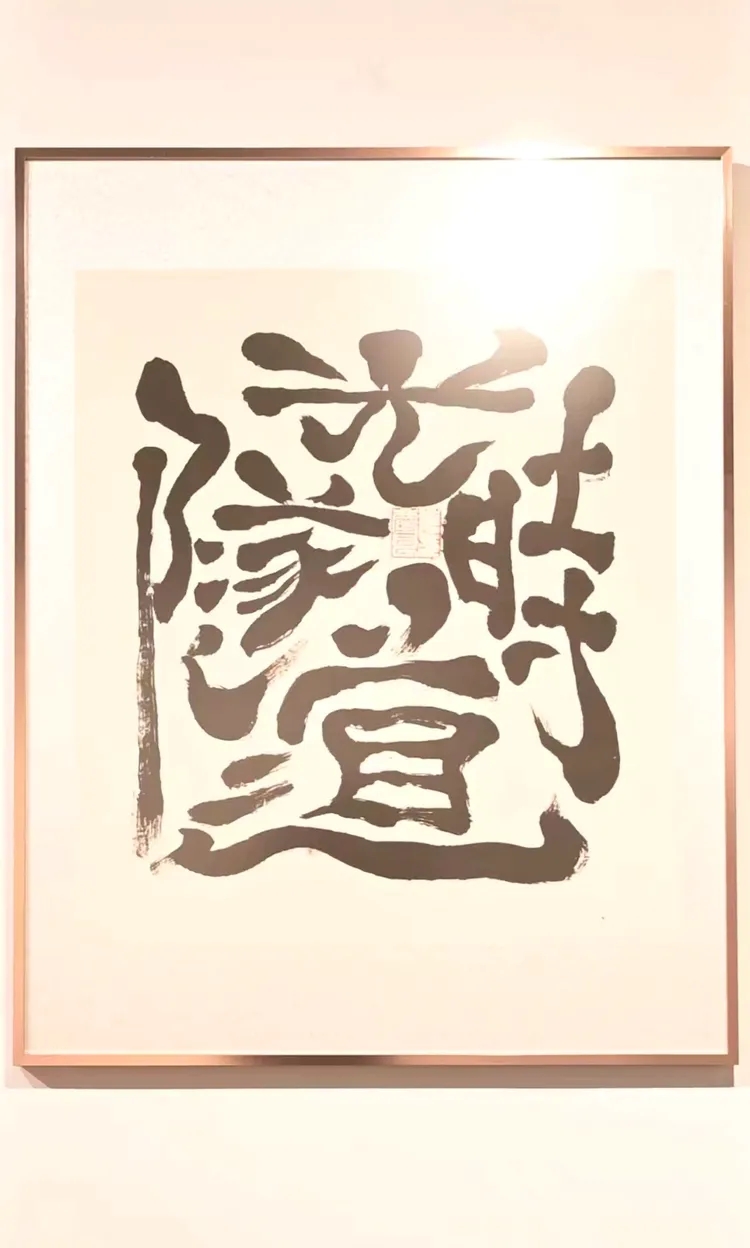 時光隧道